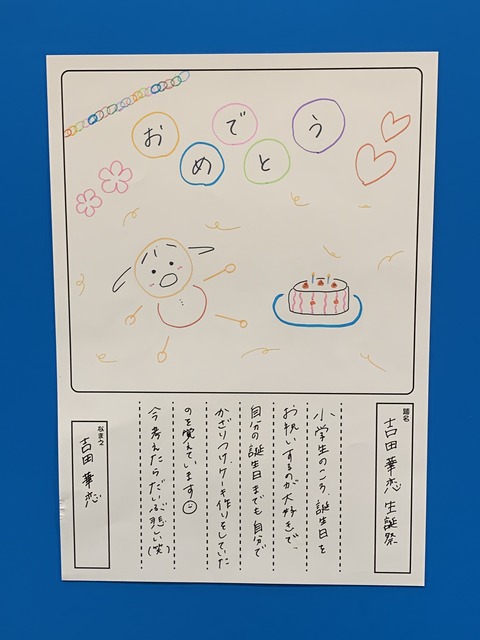 おめでとう
題名
吉田華恋 生誕祭
小学生のころ、誕生日を
お祝いするのが大好きで、
自分の誕生日までも自分で
かざりつけ、ケーキ作りをしていた
のを覚えています
今考えたらだいぶ悲しい(笑)
なまえ
吉田 華恋